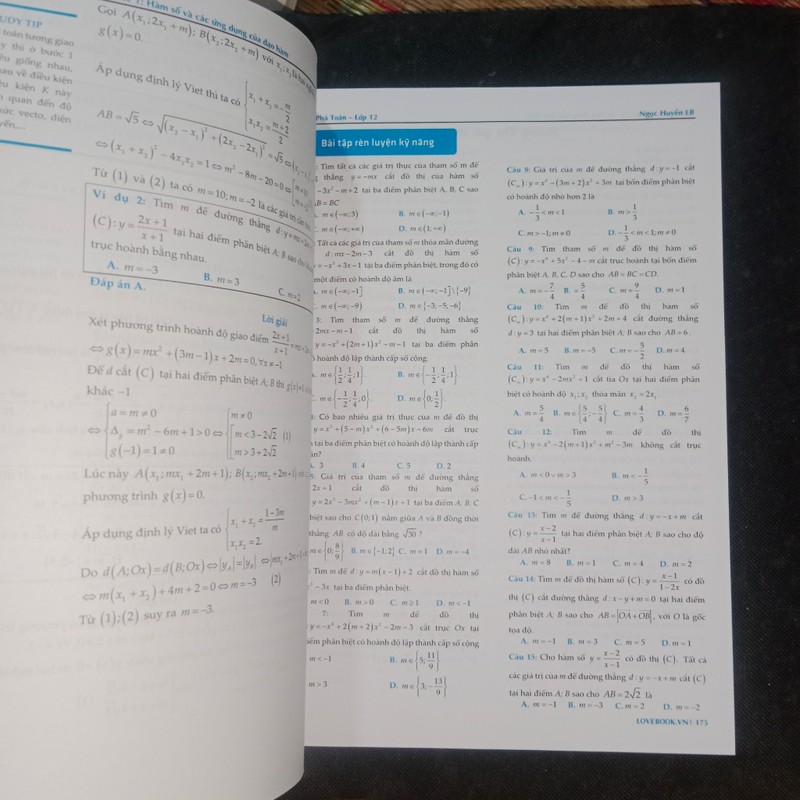 1: Hàm số và các ứng dụng của đạo hàm
UDY TIP
toán tương giao
y thì ở bước 1
ều giống nhau,
au về điều kiện
iện K này
n quan đến độ
ức vectơ, diện
yến,...
Gọi A(x₁;2x₁+m); B(x₂;2x₂+m) với x₁;x₂ là hai
g(x)=0.
Áp dụng định lý Viet thì ta có { x₁+x₂=-m/2
x₁x₂=(m+2)/2
AB=√5 ⇔ √((x₂-x₁)²+(2x₂-2x₁)²)=√5 ⇔
⇔(x₁+x₂)²-4x₁x₂=1⇔m²-8m-20=0⇔
Từ (1) và (2) ta có m=10; m=-2 là các giá trị cần
Ví dụ 2: Tìm m để đường thẳng d:y=mx+
(C):y=(2x+1)/(x+1) tại hai điểm phân biệt A; B sao cho
trục hoành bằng nhau.
A. m=-3 B. m=3 C. m=2
Đáp án A.
Lời giải
Xét phương trình hoành độ giao điểm (2x+1)/(x+1)=mx+2m
⇔g(x)=mx²+(3m-1)x+2m=0,∀x≠-1
Để d cắt (C) tại hai điểm phân biệt A; B thì g(x)=0
khác -1
⇔ { a=m≠0
Δg=m²-6m+1>0
g(-1)=1≠0
⇔ { m≠0
[ m<3-2√2
m>3+2√2 (1)
Lúc này A(x₁;mx₁+2m+1); B(x₂;mx₂+2m+1)
phương trình g(x)=0.
Áp dụng định lý Viet ta có { x₁+x₂=(1-3m)/m
x₁x₂=2.
Do d(A;Ox)=d(B;Ox)⇔|yA|=|yB|⇔|mx₁+2m+1|
⇔m(x₁+x₂)+4m+2=0⇔m=-3 (2)
Từ (1);(2) suy ra m=-3.
Phá Toán – Lớp 12
Ngọc Huyền LB
Bài tập rèn luyện kỹ năng
: Tìm tất cả các giá trị thực của tham số m để
thẳng y=-mx cắt đồ thị của hàm số
-3x²-m+2 tại ba điểm phân biệt A, B, C sao
AB=BC
m∈(-∞;3) B. m∈(-∞;-1)
m∈(-∞;+∞) D. m∈(1;+∞)
Tất cả các giá trị của tham số m thỏa mãn đường
d:mx-2m-3 cắt đồ thị hàm số
y=-x³+3x-1 tại ba điểm phân biệt, trong đó có
một điểm có hoành độ âm là
m∈(-∞;-1] B. m∈(-∞;-1]\{-9}
m∈(-∞;-9) D. m∈{-3;-5;-6}
3: Tìm tham số m để đường thẳng
2mx-m-1 cắt đồ thị hàm số
y=-x³+(2m+1)x²-m-1 tại ba điểm phân
có hoành độ lập thành cấp số cộng.
m∈{1/2;1/4;1}. B. m∈{-1/2;1/4;1}.
m∈{-1/2;1/4;0}. D. m∈{0;1/2}.
4: Có bao nhiêu giá trị thực của m để đồ thị
y=x³+(5-m)x²+(6-5m)x-6m cắt trục
tại ba điểm phân biệt có hoành độ lập thành cấp
ân?
A. 3 B. 4 C. 5 D. 2
5: Giá trị của tham số m để đường thẳng
2x+1 cắt đồ thị hàm số
y=2x³-3mx²+(m-1)x+1 tại ba điểm A; B; C
biệt sao cho C(0;1) nằm giữa A và B đồng thời
thẳng AB có độ dài bằng √30 ?
m∈{0;8/9} B. m∈{-1;2} C. m=1 D. m=-4
: Tìm m để d:y=m(x-1)+2 cắt đồ thị hàm số
-3x tại ba điểm phân biệt.
m<0 B. m>0 C. m≥1 D. m<-1
7: Tìm m để đồ thị
y=-x⁴+2(m+2)x²-2m-3 cắt trục Ox tại
điểm phân biệt có hoành độ lập thành cấp số cộng
m<-1 B. m∈{5;11/9}
m>3 D. m∈{3;-13/9}
Câu 8: Giá trị của m để đường thẳng d:y=-1 cắt
(Cm):y=x⁴-(3m+2)x²+3m tại bốn điểm phân biệt
có hoành độ nhỏ hơn 2 là
A. -1/3<m<1 B. m>1/3
C. m>-1; m≠0 D. -1/3<m<1; m≠0
Câu 9: Tìm tham số m để đồ thị hàm số
(C):y=-x⁴+5x²-4-m cắt trục hoành tại bốn điểm
phân biệt A, B, C, D sao cho AB=BC=CD.
A. m=-7/4 B. =5/4 C. m=9/4 D. m=1
Câu 10: Tìm m để đồ thị hàm số
(Cm):y=x⁴+2(m+1)x²+2m+4 cắt đường thẳng
d:y=3 tại hai điểm phân biệt A; B sao cho AB=6.
A. m=5 B. m=-5 C. m=-5/2 D. m=4
Câu 11: Tìm m để đồ thị hàm số
(Cm):y=x⁴-2mx²+1 cắt tia Ox tại hai điểm phân
biệt có hoành độ x₁;x₂ thỏa mãn x₂=2x₁
A. m=5/4 B. m∈{5/4;-5/4} C. m=4/3 D. m=6/7
Câu 12: Tìm m để đồ thị
(Cm):y=x⁴-2(m+1)x²+m²-3m không cắt trục
hoành.
A. m<0∨m>3 B. m<-1/5
C. -1<m<-1/5 D. m>3
Câu 13: Tìm m để đường thẳng d:y=-x+m cắt
(C):y=(x-2)/(x-1) tại hai điểm phân biệt A; B sao cho độ
dài AB nhỏ nhất?
A. m=8 B. m=1 C. m=4 D. m=2
Câu 14: Tìm m để đồ thị hàm số (C):y=(x-1)/(1-2x) có đồ
thị (C) cắt đường thẳng d:x-y+m=0 tại hai điểm
phân biệt A; B sao cho AB=|OA+OB|, với O là gốc
tọa độ.
A. m=-1 B. m=3 C. m=5 D. m=1
Câu 15: Cho hàm số y=(x-2)/(x-1) có đồ thị (C). Tất cả
các giá trị của m để đường thẳng d:y=-x+m cắt (C)
tại hai điểm A; B sao cho AB=2√2 là
A. m=-1 B. m=-3 C. m=2 D. m=-2
LOVEBOOK.VN| 175